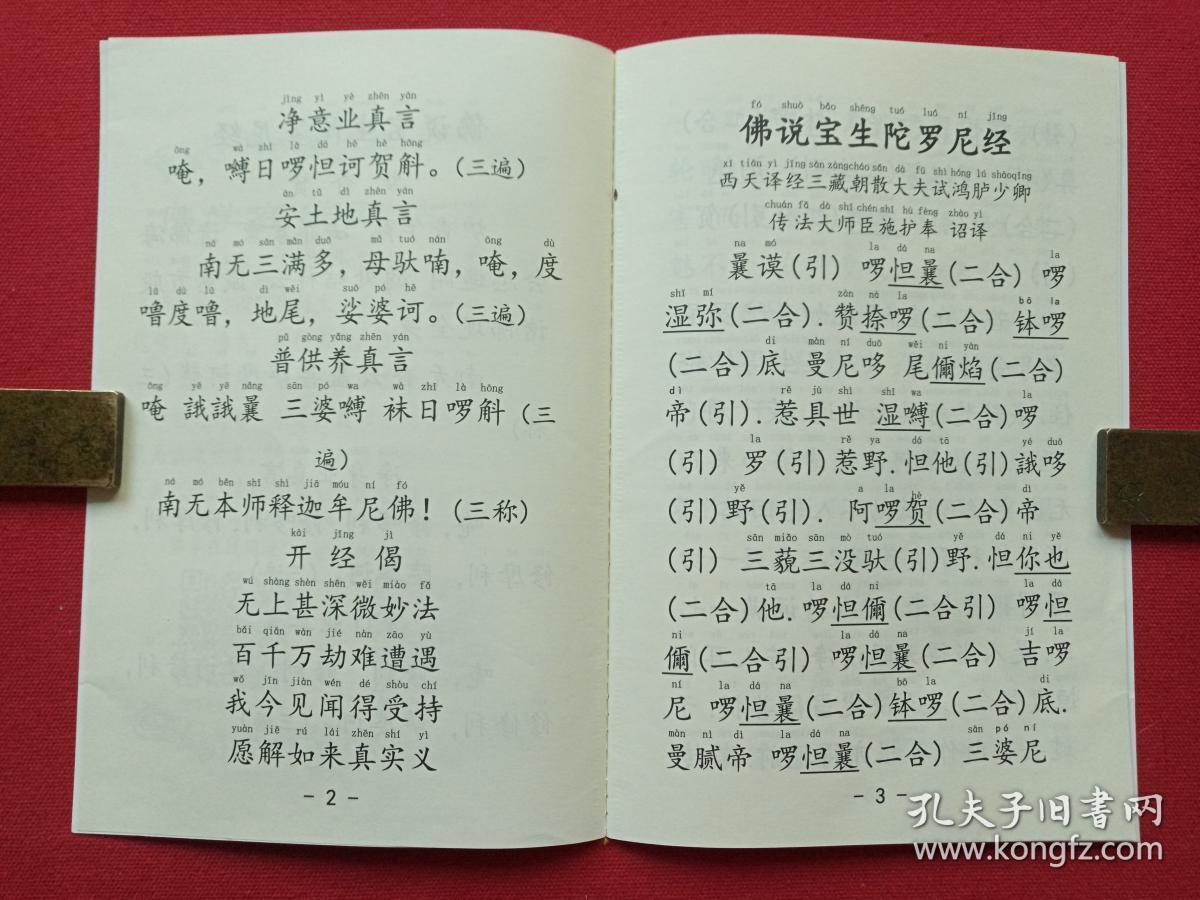 jìng yì yè zhēn yán
净意业真言
ōng wà zhī lā dá hē hè hōng
唵，嚩日啰怛诃贺斛。（三遍）
ān tǔ dì zhēn yán
安土地真言
ná mó sān mǎn duō mǔ tuó nán ōng dù
南无三满多，母驮喃，唵，度
lū dù lū dì wěi suō pó hē
噜度噜，地尾，娑婆诃。（三遍）
pǔ gòng yǎng zhēn yán
普供养真言
ōng yē yē náng sān pó wa wà zhī là hōng
唵 誐誐曩 三婆嚩 袜日啰斛（三
遍）
ná mó běn shī shì jiā móu ní fó
南无本师释迦牟尼佛！（三称）
kāi jīng jì
开经偈
wú shàng shèn shēn wēi miào fǎ
无上甚深微妙法
bǎi qiān wàn jié nàn zāo yù
百千万劫难遭遇
wǒ jīn jiàn wén dé shòu chí
我今见闻得受持
yuàn jiě rú lái zhēn shí yì
愿解如来真实义
－2－
fó shuō bǎo shēng tuó luó ní jīng
佛说宝生陀罗尼经
xī tiān yì jīng sān zàng cháo sàn dà fū shì hóng lú shào qīng
西天译经三藏朝散大夫试鸿胪少卿
chuán fǎ dà shī chén shī hù fèng zhào yì
传法大师臣施护奉 诏译
na mó la dá na la
曩谟（引） 啰怛曩（二合）啰
shī mí zàn nà la bō la
湿弥（二合）. 赞捺啰（二合） 钵啰
di màn ní duō wěi ni yàn
（二合）底 曼尼哆 尾儞焰（二合）
dì rě jù shì shī wa
帝（引）. 惹具世 湿嚩（二合）啰
la rě ya dá tā yé duō
（引） 罗（引）惹野. 怛他（引）誐哆
yě a la hè dì
（引）野（引）. 阿啰贺（二合）帝
sān miǎo sān mò tuó yě dá ni yě
（引） 三藐三没驮（引）野. 怛你也
tā la dá ni la dá
（二合）他. 啰怛儞（二合引） 啰怛
ni la dá na jí la
儞（二合引） 啰怛曩（二合） 吉啰
ní la dá na bō la dì
尼 啰怛曩（二合）钵啰（二合）底.
màn nì dì la dá na sān pó ní
曼腻帝 啰怛曩（二合） 三婆尼
－3－
孔夫子旧书网
www.kongfz.com